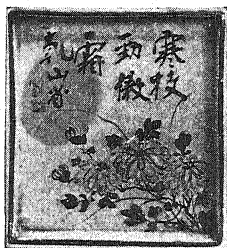 寒枝
勁傲
霜
乾山省